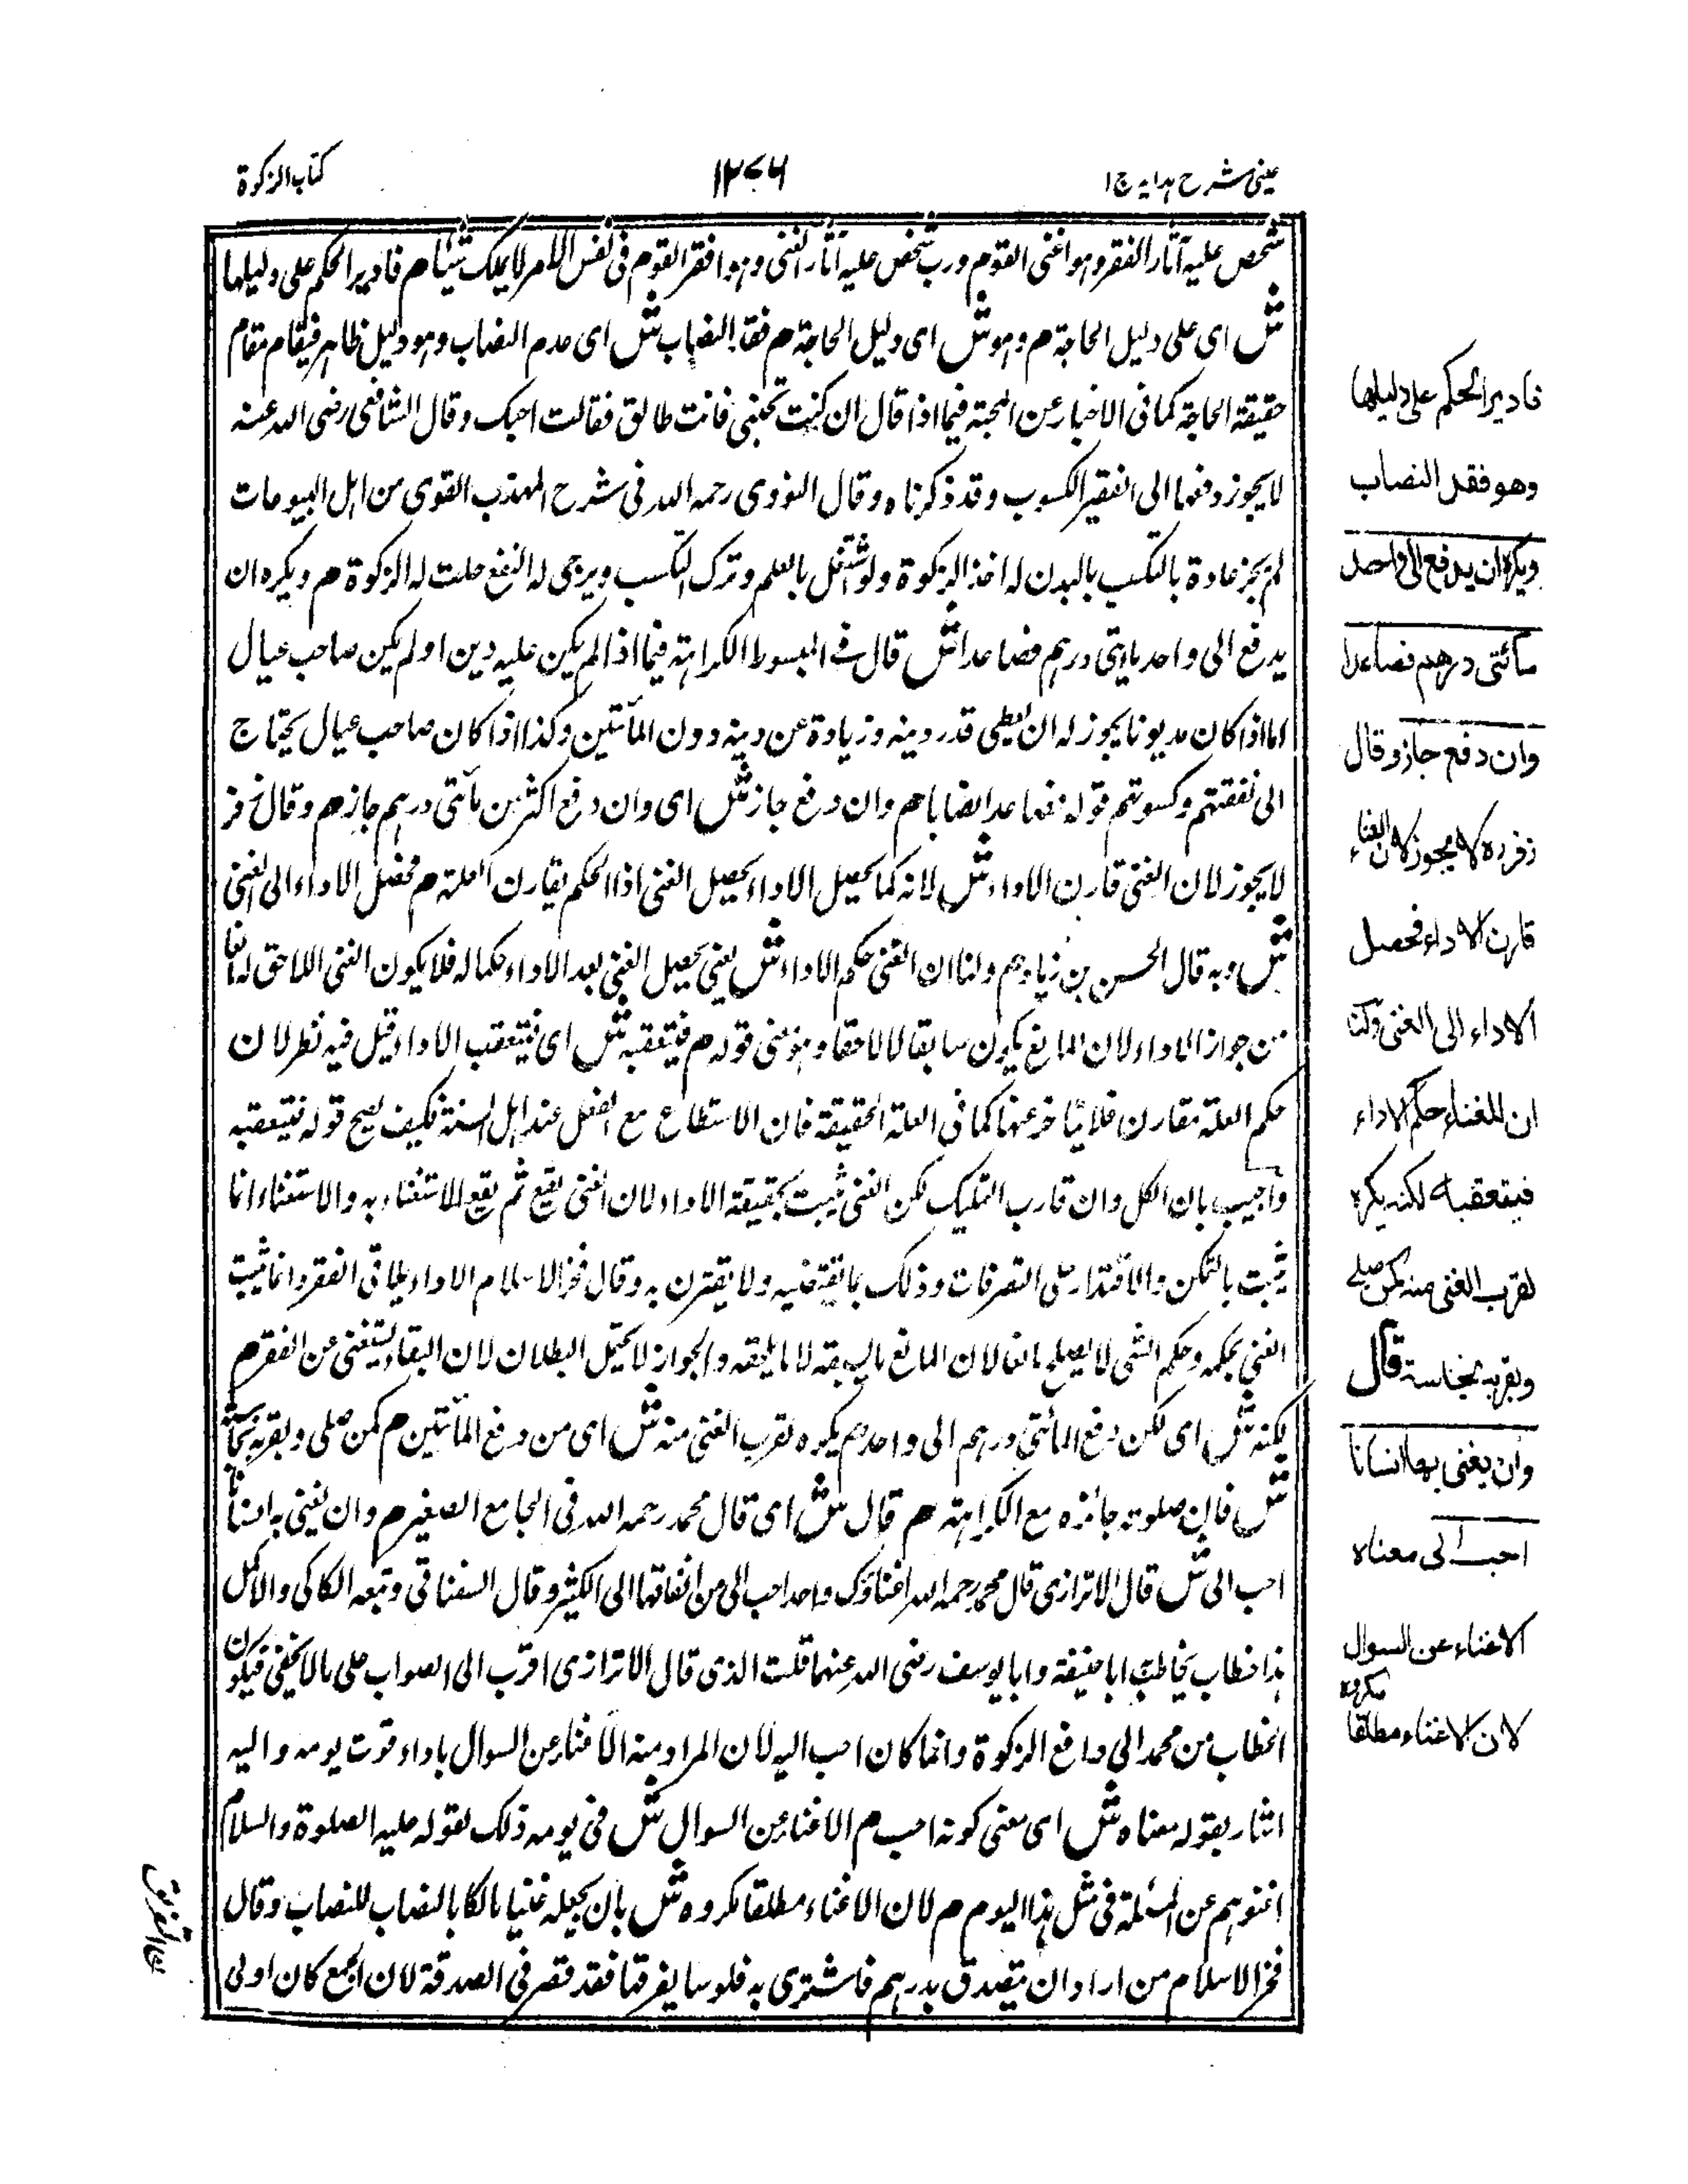 عینی شرح ہدایہ ج ۱
۱۲۷۶
کتاب الزکوة
شخص علیہ آثار الفقر وہو اغنی القوم ورب شخص علیہ آثار الغنی وہو افقر القوم فی نفس الامر لا یملک شیئا م فادیر الحکم علی دلیلہا
ش ای علی دلیل الحاجة م وہو ش ای دلیل الحاجة م فقد النصاب ش ای عدم النصاب وہو دلیل ظاہر فیقام مقام
حقیقة الحاجة کما فی الاخبار عن المحبة فیما اذا قال ان کنت تحبنی فانت طالق فقالت احبک وقال الشافعی رضی اللہ عنہ
لا یجوز دفعہا الی الفقیر الکسوب وقد ذکرناہ وقال النووی رحمہ اللہ فی شرح المہذب القوی من اہل البیوعات
لم یجز عادة بالتکسب بالبدن لہ اخذ الزکوة ولو اشتغل بالعلم وترک التکسب ویرجی لہ النفع حلت لہ الزکوة م ویکرہ ان
یدفع الی واحد مایتی درہم فصاعدا ش قال فے المبسوط الکراہتہ فیما اذا لم یکن علیہ دین او لم یکن صاحب عیال
اما اذا کان مدیونا یجوز لہ ان یعطی قدر دینہ وزیادة عن دینہ دون المأتین وکذا اذا کان صاحب عیال یحتاج
الی نفقتہم وکسوتہم قولہ فصاعدا نصابا م وان دفع جاز ش ای وان دفع اکثر من مأتی درہم جاز م وقال زفر
لا یجوز لان الغنی قارن الاداء ش لانہ کما یحصل الاداء یحصل الغنی اذا الحکم یقارن العلة م فحصل الاداء الی الغنی
ش وبہ قال الحسن بن زیاد م ولنا ان الغنی حکم الاداء ش یعنی یحصل الغنی بعد الاداء حکما لہ فلا یکون الغنی اللاحق لہ مانعا
من جواز الاداء لان المانع یکون سابقا لا لاحقا وہو معنی قولہ م فیتعقبہ ش ای فیتعقب الاداء قیل فیہ نظر لان
حکم العلة مقارن فلا یتأخر عنہا کما فی العلة الحقیقة فان الاستطاع مع الفعل عند اہل السنة فکیف یصح قولہ فیتعقبہ
واجیب بان الکل وان قارب التملیک لکن الغنی یثبت بحقیقة الاداء لان الغنی یقع ثم یقع الاستغناء بہ والاستغناء انما
یثبت بالتمکن والاقتدار علی التصرفات وذلک بما یقتضیہ ولا یقترن بہ وقال فخر الاسلام الاداء یلاقی الفقر وانما یثبت
الغنی بحکمہ وحکم الشی لا یصلح مانعا لان المانع ما یسبقہ لا ما یلحقہ والجواز لا یحتمل البطلان لان البقاء یستغنی عن الفقر م
لکنہ ش ای لکن دفع المأتی درہم الی واحد م یکرہ لقرب الغنی منہ ش ای من دفع المأتین م کمن صلی وبقربہ نجاسة
ش فان صلوتہ جائزہ مع الکراہتہ م قال ش ای قال محمد رحمہ اللہ فی الجامع الصغیر م وان یغنی بہ انسانا
احب الی ش قال الاترازی قال محمد رحمہ اللہ اغناؤک واحدا احب الی من انفاقہا الی الکثیر وقال السغناقی وتبعہ الکاکی والاکمل
ہذا خطاب یخاطب ابا حنیفة وابا یوسف رضی اللہ عنہما قلت الذی قال الاترازی اقرب الی الصواب علی ما لا یخفی فیکون
الخطاب من محمد الی دافع الزکوة وانما کان احب الیہ لان المراد منہ الاغناء عن السوال باداء قوت یومہ والیہ
اشار بقولہ معناہ ش ای معنی کونہ احب م الاغناء عن السوال ش فی یومہ ذلک لقولہ علیہ الصلوة والسلام
اغنوہم عن المسئلة فی مثل ہذا الیوم م لان الاغناء مطلقا مکروہ ش بان یجعلہ غنیا مالکا بالنصاب للنصاب وقال
فخر الاسلام من اراد ان یتصدق بدرہم فاشتری بہ فلوسا یفرقہا فقد قصر فی الصدقة لان الجمع کان اولی
فادیر الحکم علی دلیلھا
وھو فقد النصاب
ویکرہ ان یدفع الی واحد
مائتی درھم فصاعدا
وان دفع جاز وقال
زفر رہ لا یجوز لان الغناء
قارن الاداء فحصل
الاداء الی الغنی ولنا
ان الغناء حکم الاداء
فیتعقبہ لکنہ یکرہ
لقرب الغنی منہ کمن صلے
وبقربہ نجاسة قال
وان یغنی بھا انسانا
احب الی معناہ
الاغناء عن السوال
لان الاغناء مطلقا
مکروہ